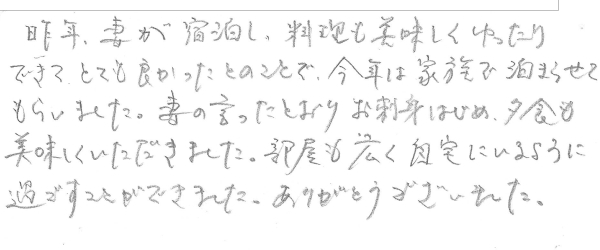 昨年、妻が宿泊し、料理も美味しくゆったり
できて、とても良かったとのことで、今年は家族で泊まらせて
もらいました。妻の言ったとおりお刺身はじめ、夕食も
美味しくいただきました。部屋も広く自宅にいるように
過ごすことができました。ありがとうございました。